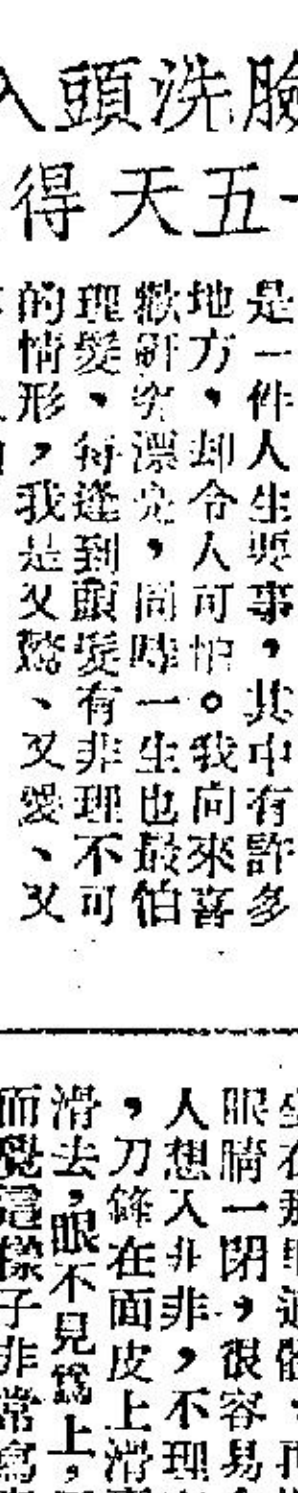 臉洗頭入
一五天得
是一件人生要事,其中有許多
地方,却令人可怕。我向來喜
歡研究漂亮,同時一生也最怕
理髮,每逢到頭髮有非理不可
的情形,我是又驚、又愛、又
眼睛一閉,很容易
人想入非非,不理
,刀鋒在面皮上滑
滑去,眼不見爲上,
而覺這樣子非常